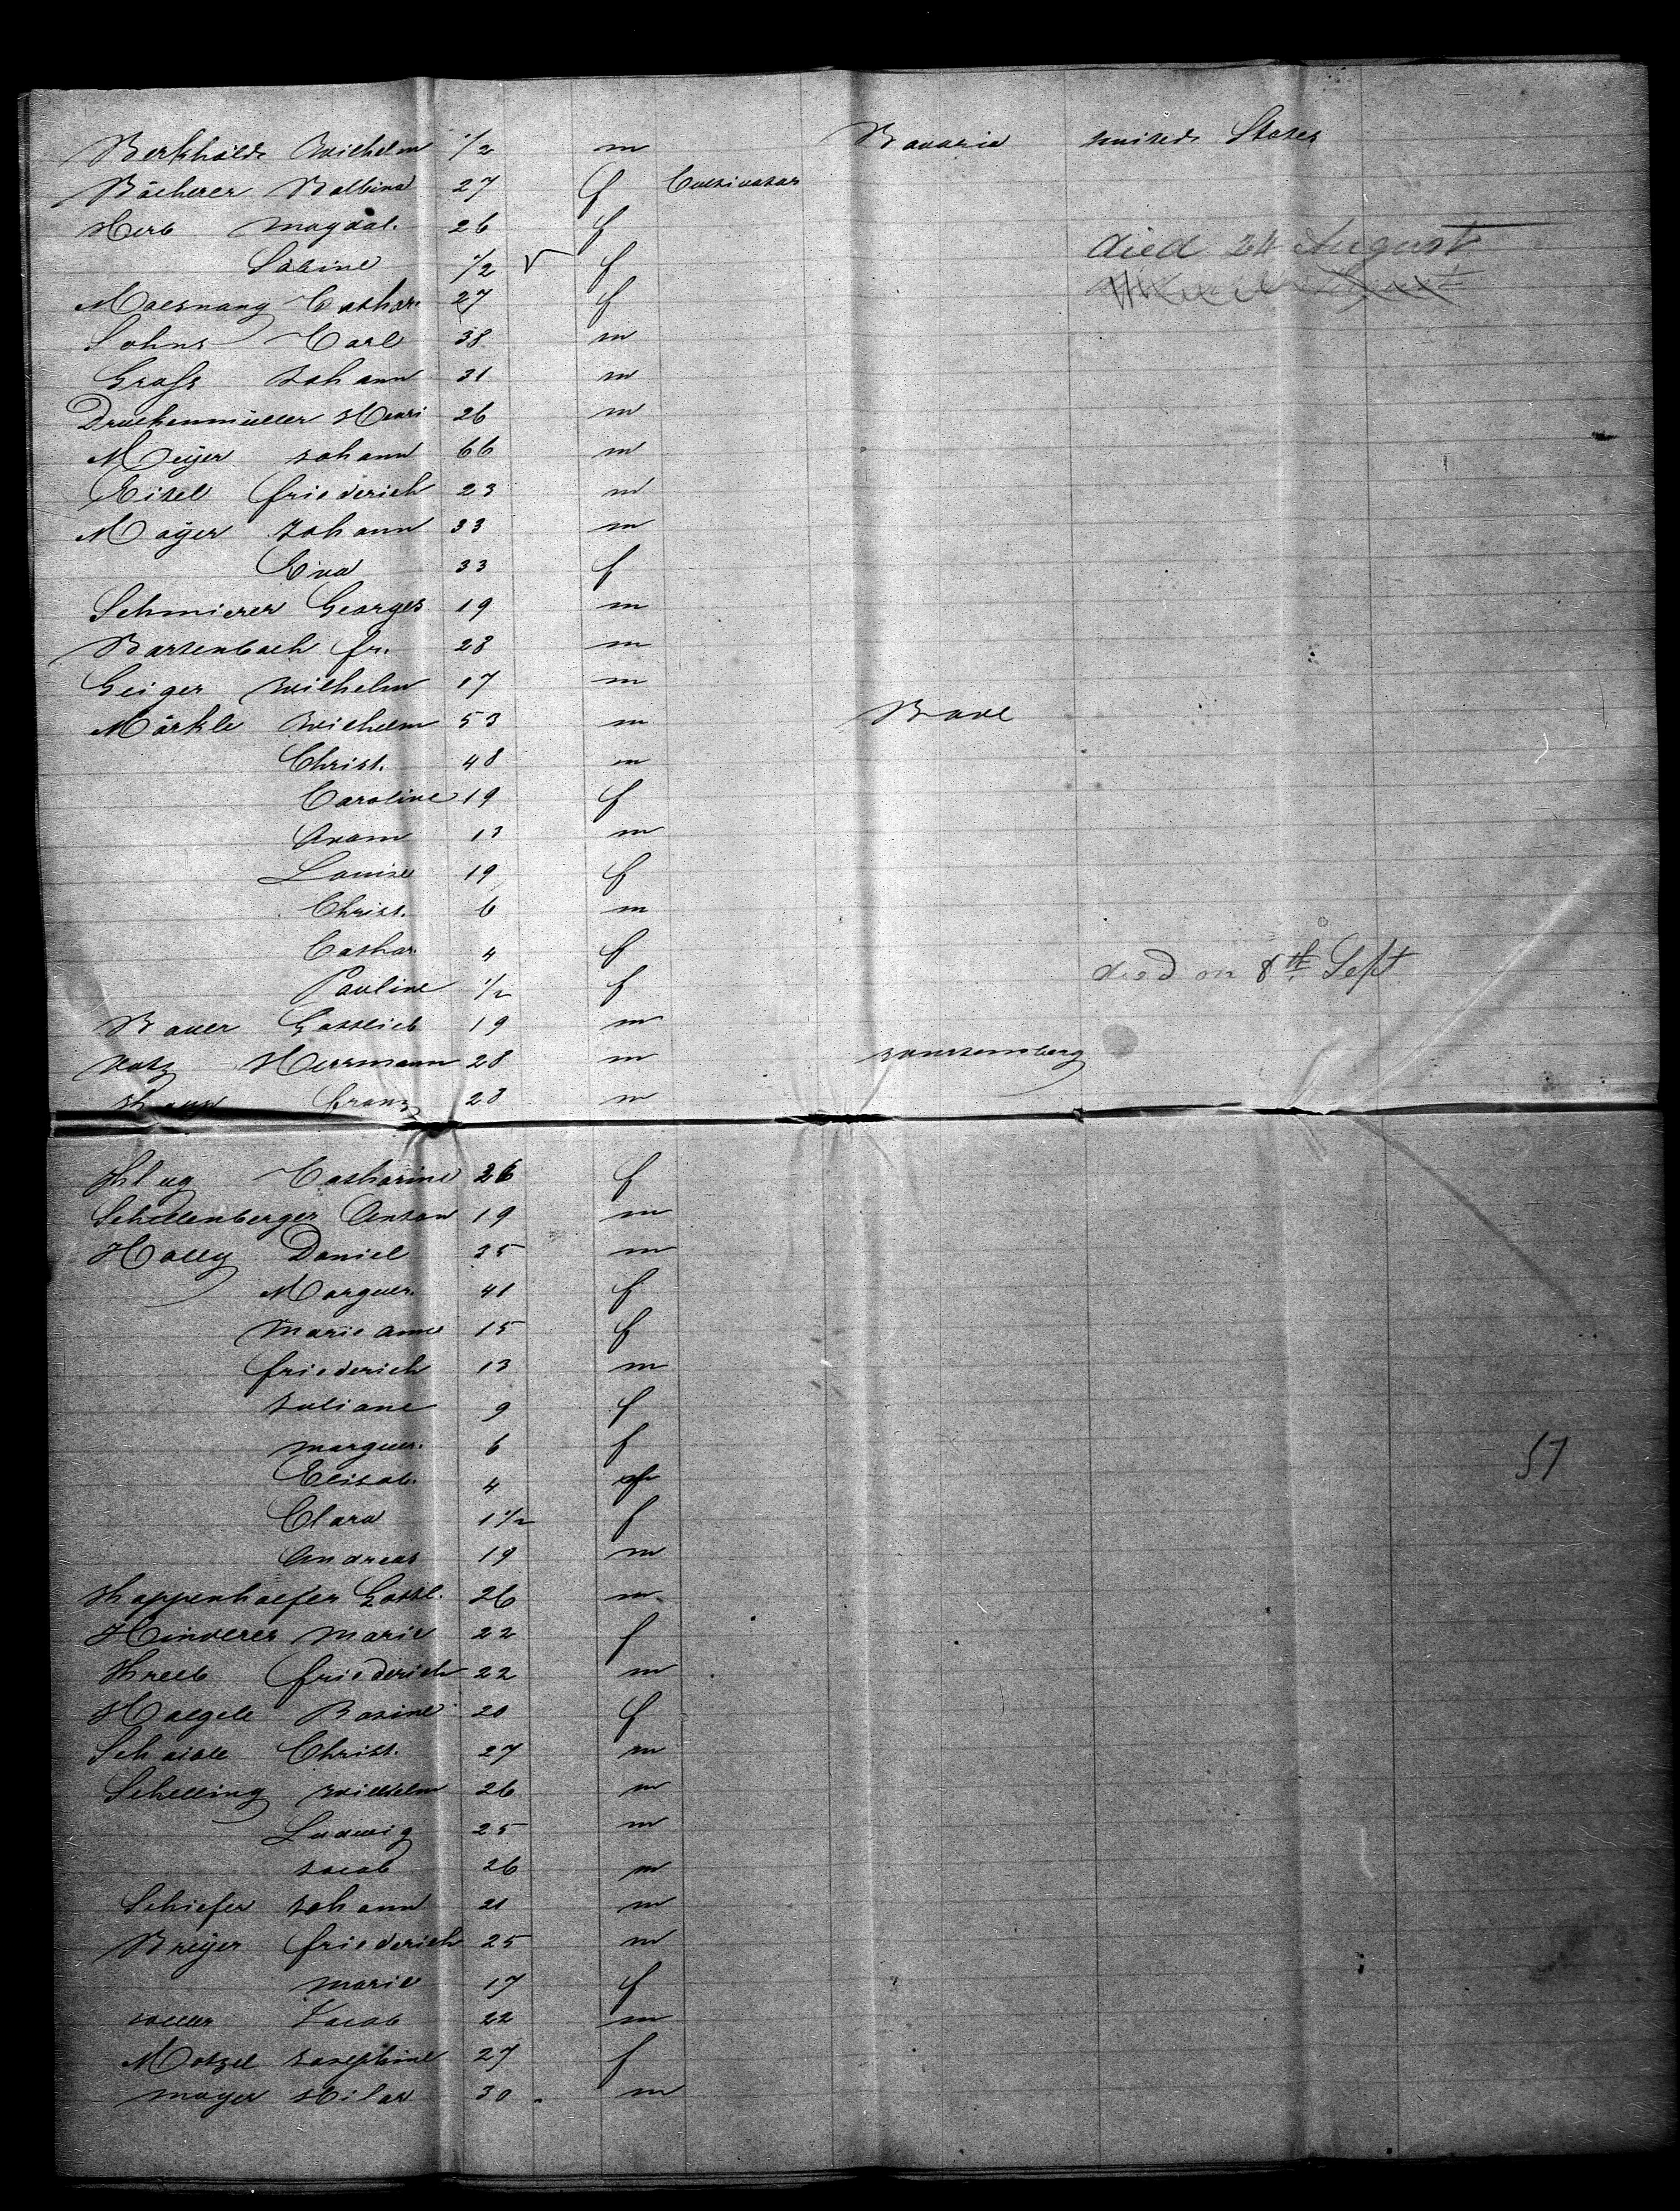 Berkholdt Wilhelm 1/2 m Bavaria united States
Bächerer Balbina 27 f Cultivator
Herb Magdal. 26 f
Sabine 1/2 √ f died 24 August
Maesnang Cathar. 27 f
Sohns Carl 38 m
Grafs Johann 31 m
Druckenmüller Henri 26 m
Meÿer Johann 66 m
Eitel friederich 23 m
Maÿer Johann 33 m
Eva 33 f
Schmierer Georges 19 m
Bartenbach fr. 28 m
Geiger Wilhelm 17 m
Märkle Wilhelm 53 m Bade
Christ. 48 m
Caroline 19 f
Adam 13 m
Louise 19 f
Christ. 6 m
Cathar. 4 f
Pauline 1/2 f died on 8th Sept
Bauer Gottlieb 19 m
Hermann 28 m Wurtemberg
Franz 28 m
Klug Catharine 26 f
Schellenberger Anton 19 m
Hally Daniel 35 m
Marguer. 41 f
Marie Anne 15 f
friederich 13 m
Juliane 9 f
Marguer. 6 f
Elisab. 4 f 57
Clara 1 1/2 f
Andreas 19 m
Kappenhoefer Gottl. 26 m
Hinderer Marie 22 f
Kreeb friederich 22 m
Haegele Rosine 20 f
Schaible Christ. 27 m
Schelling Wilhelm 26 m
Ludwig 25 m
Jacob 26 m
Schiefer Johann 21 m
Breÿer friederich 25 m
Marie 17 f
Jacob 22 m
Motzel Josephine 27 f
Mayer Hilar 30 m